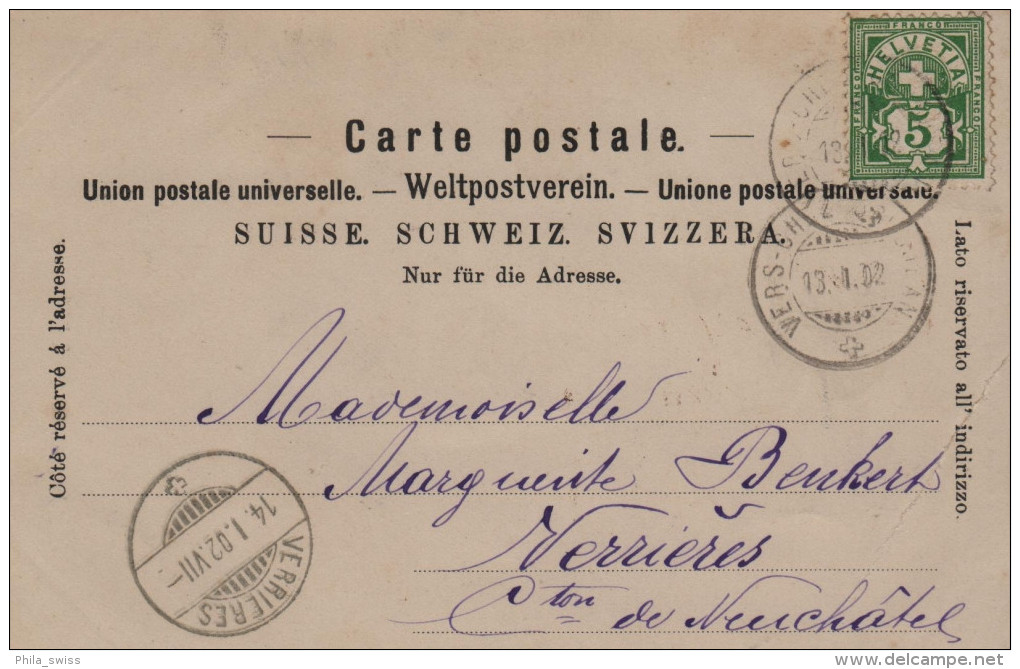 FRANCO
HELVETIA
FRANCO
FRANCO
5
— Carte postale. —
Union postale universelle. — Weltpostverein. — Unione postale universale.
SUISSE. SCHWEIZ. SVIZZERA.
Nur für die Adresse.
Côté réservé à l'adresse.
Lato riservato all' indirizzo.
VERS-CH
13. I. 02
Mademoiselle
Marguerite Benkert
Verrières
Cton de Neuchâtel
14. I. 02. VII –
VERRIERES
Phila_swiss
delcampe.net